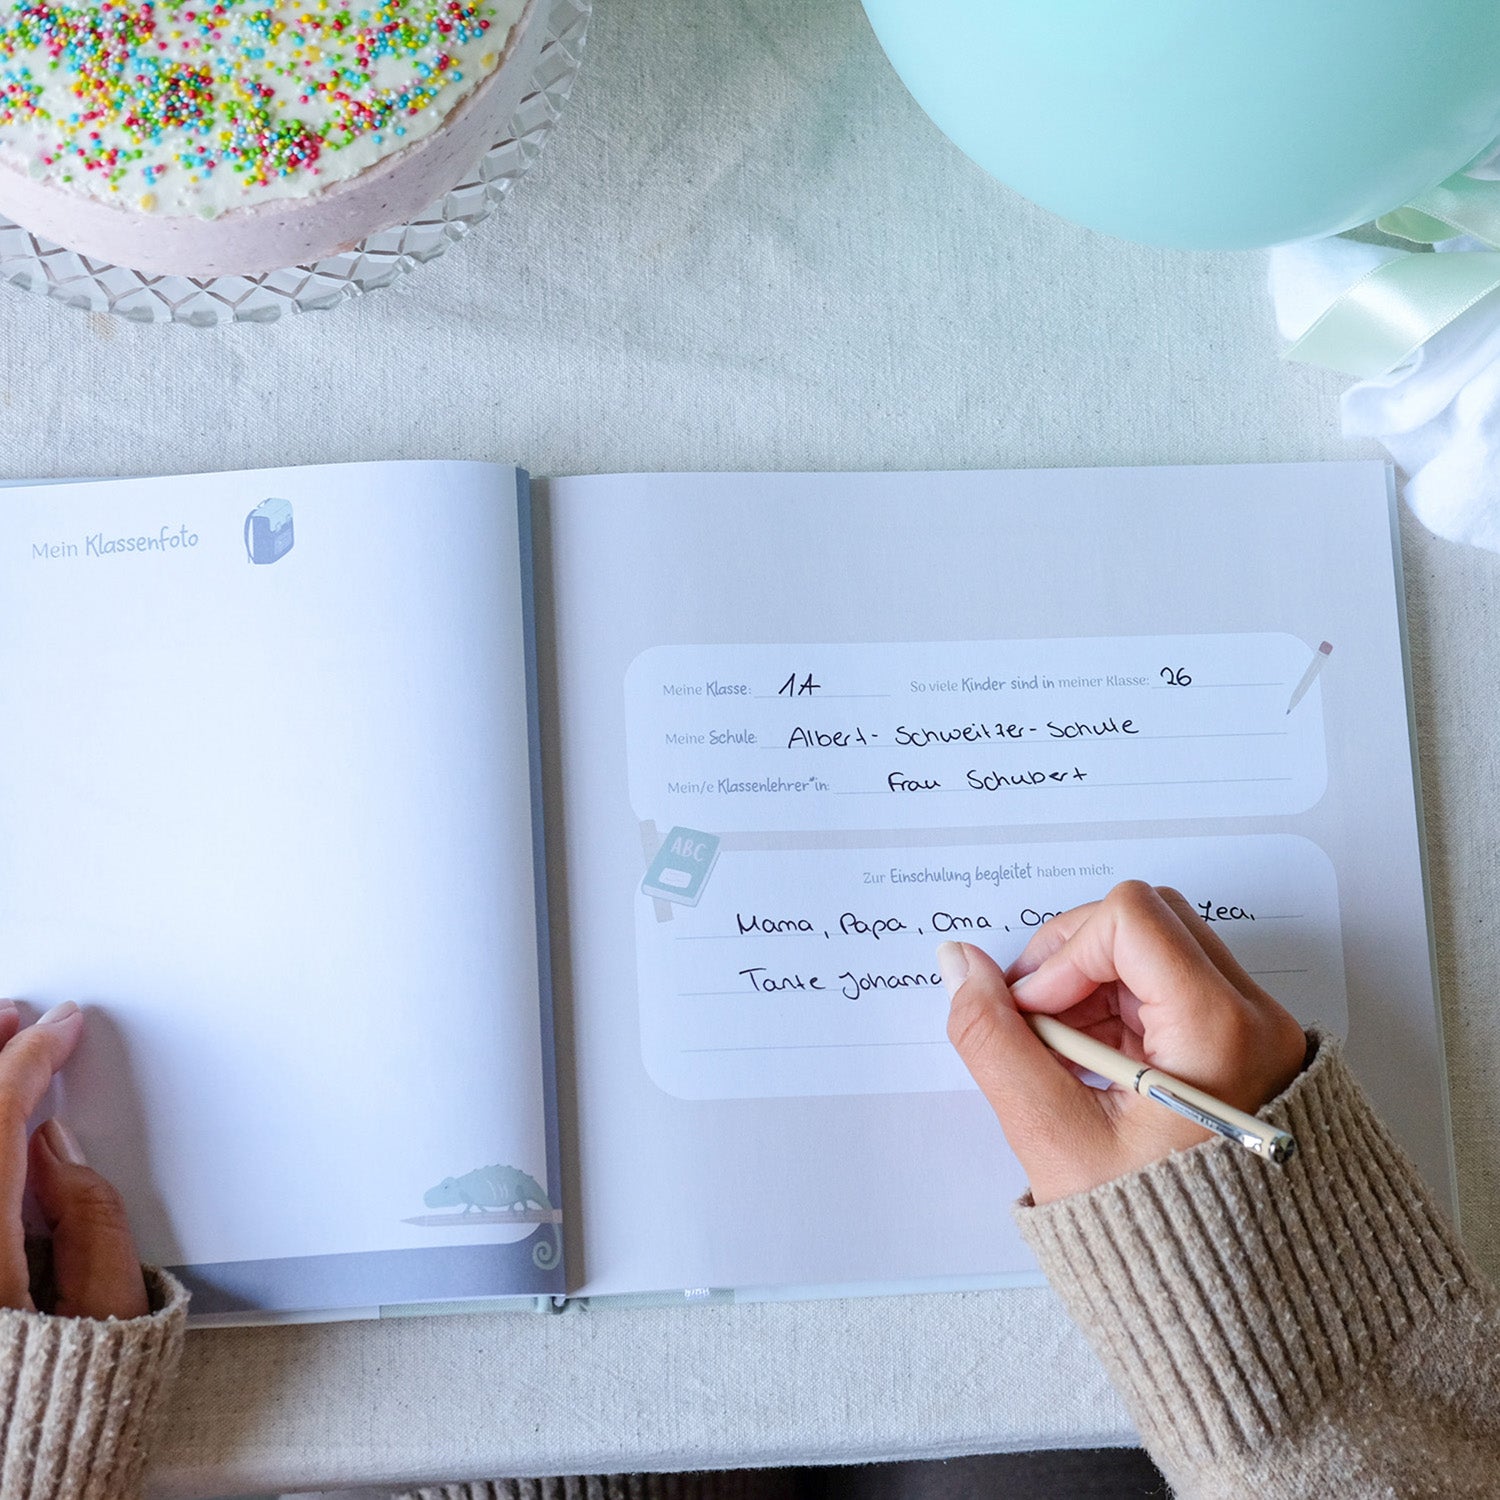 Mein Klassenfoto
Meine Klasse: 1A So viele Kinder sind in meiner Klasse: 26
Meine Schule: Albert-Schweitzer-Schule
Mein/e Klassenlehrer*in: Frau Schubert
ABC
Zur Einschulung begleitet haben mich:
Mama, Papa, Oma, Lea,
Tante Johanna